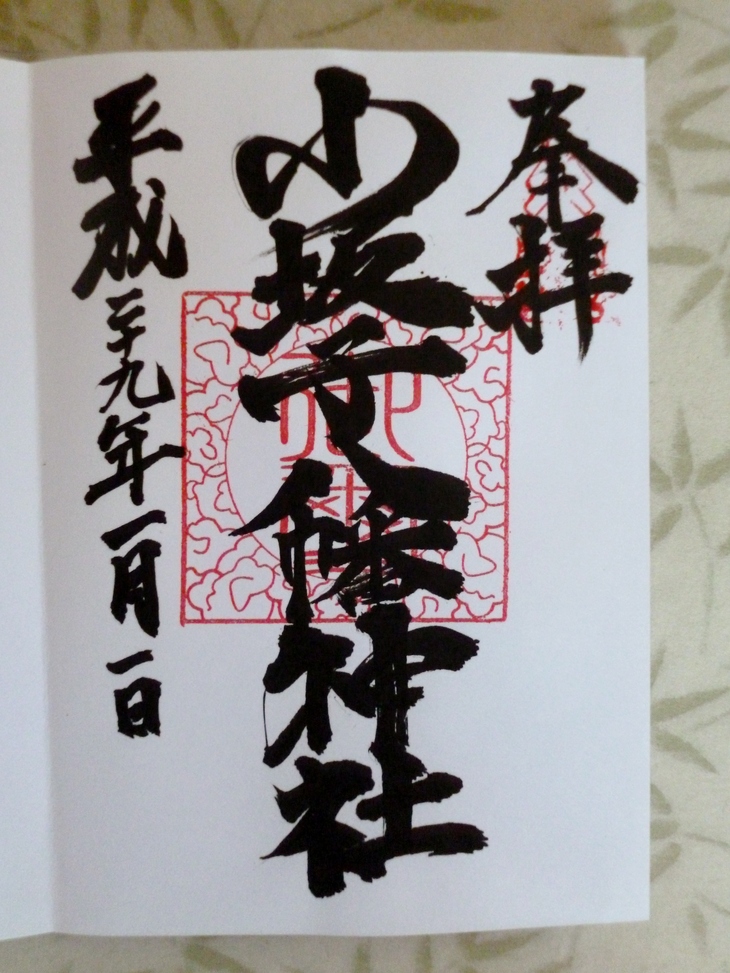 奉拝
小坂子八幡神社
平成二十九年一月一日